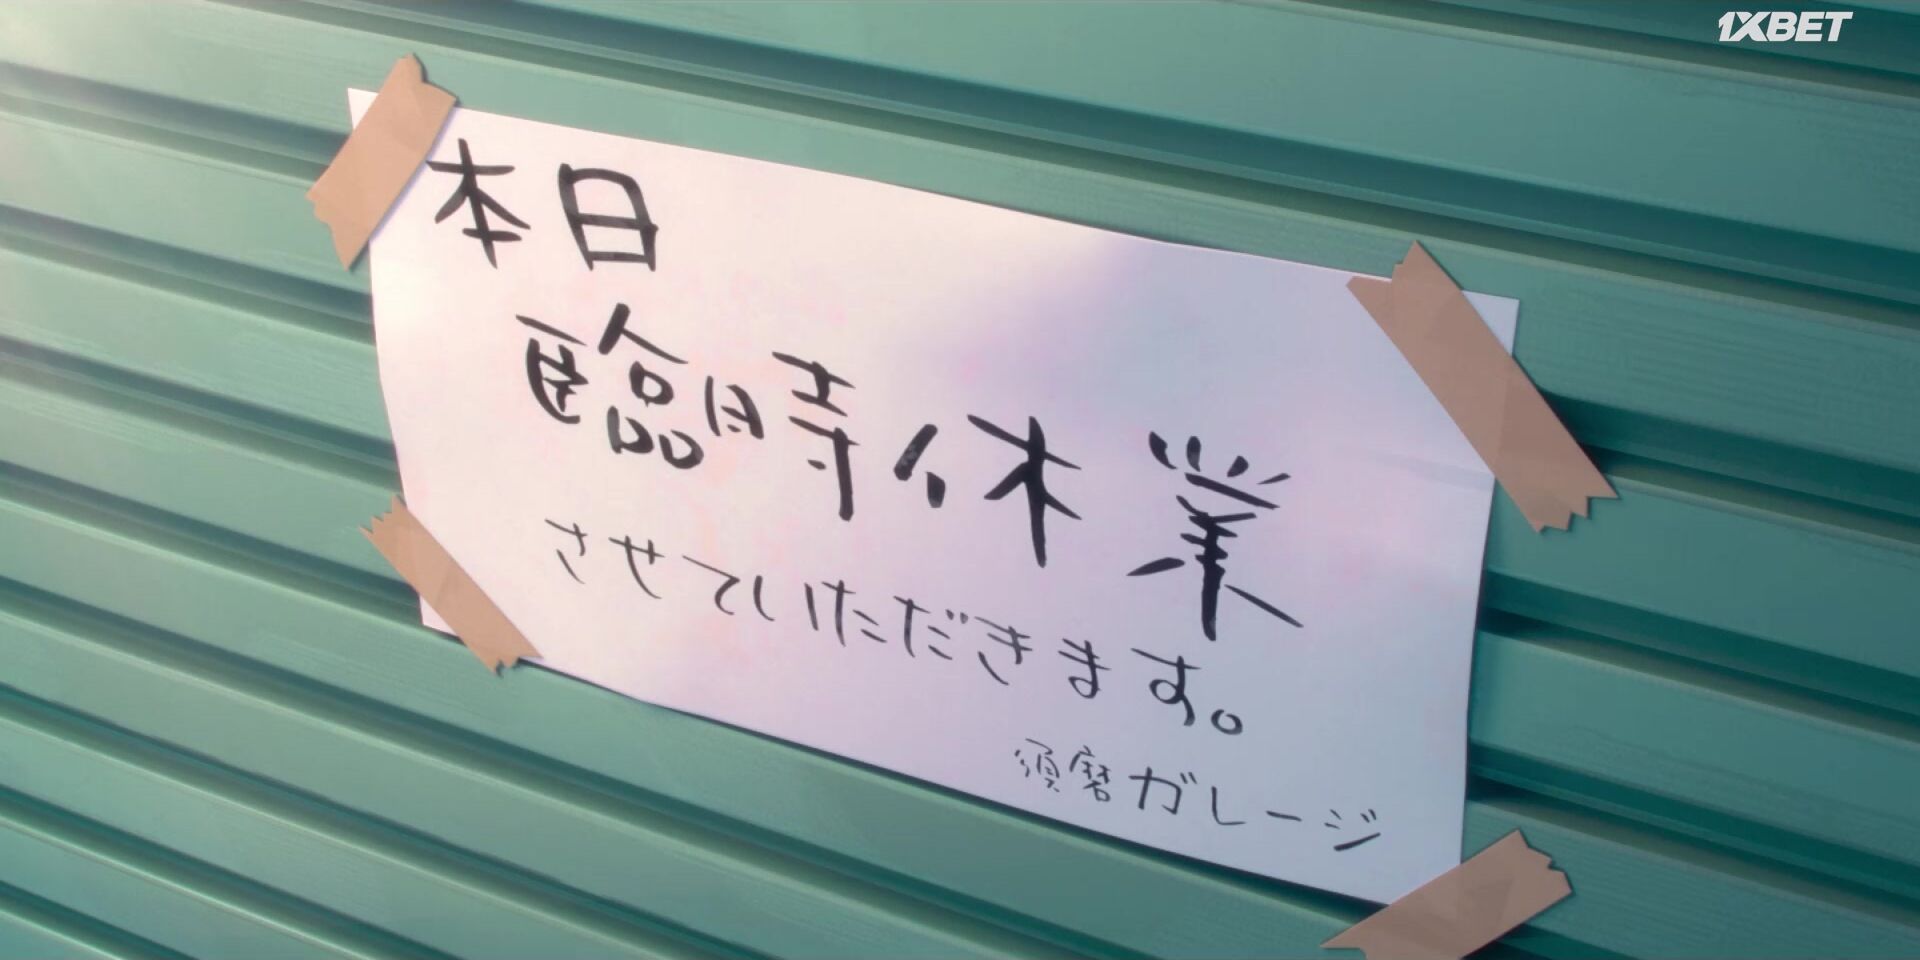 1XBET
本日
臨時休業
させていただきます。
須磨ガレージ